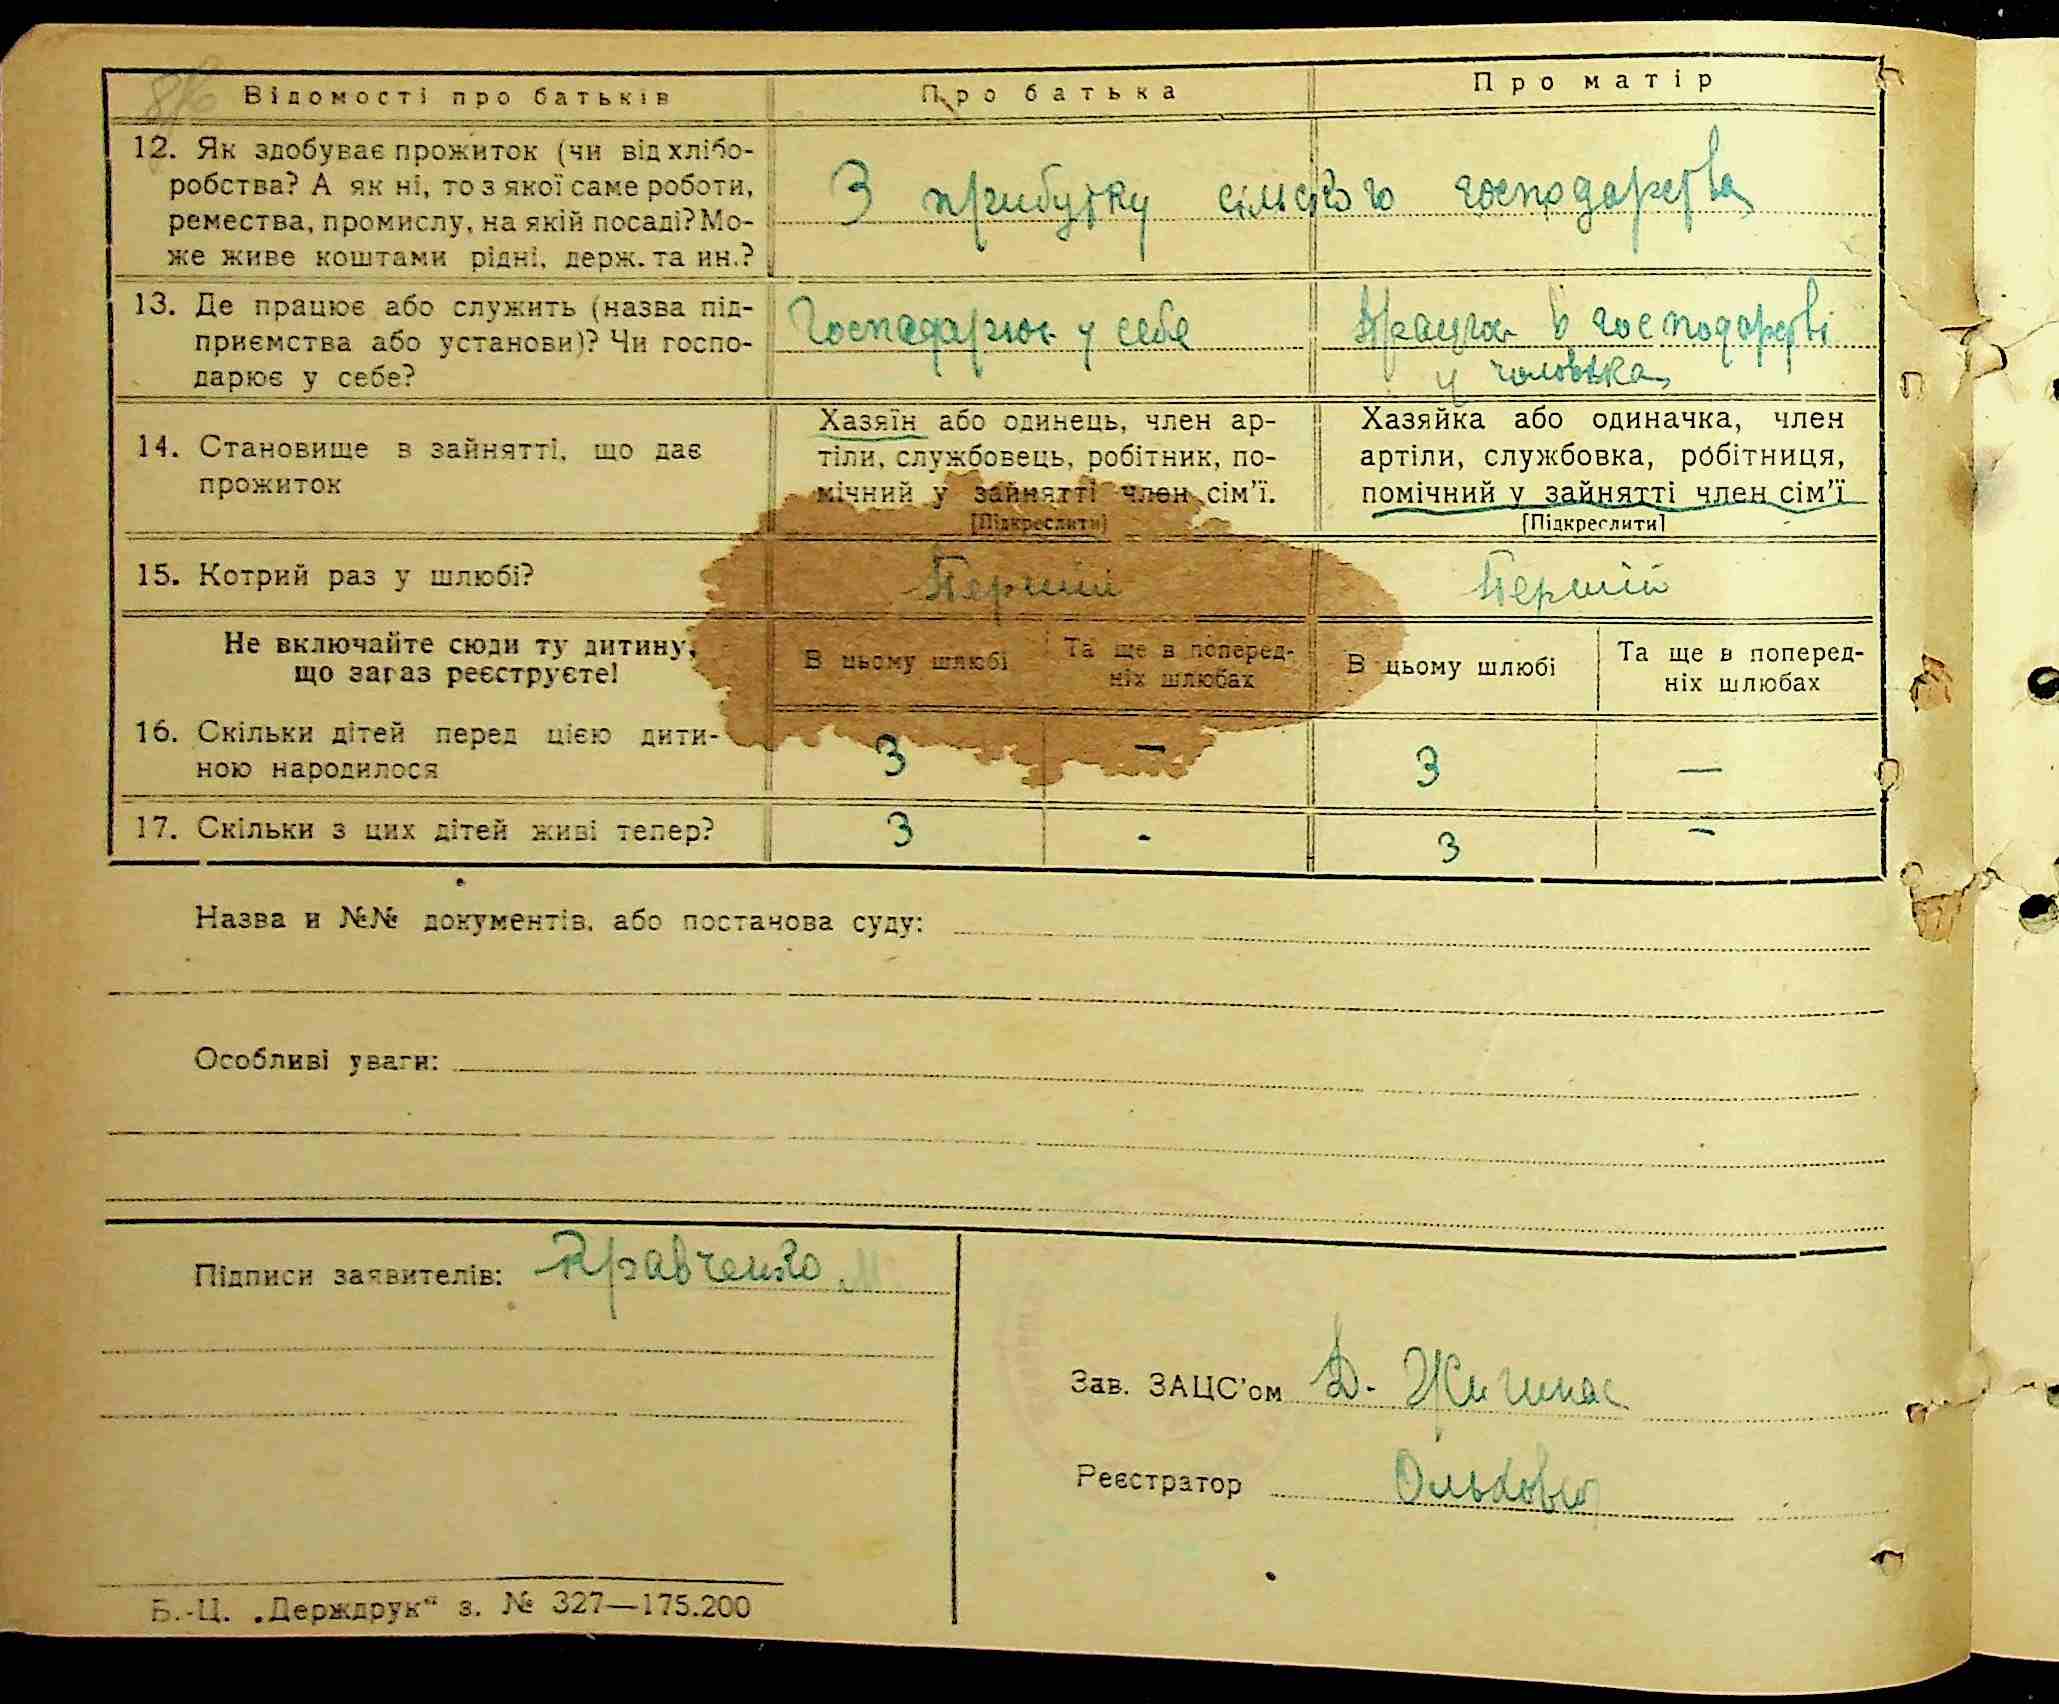 Відомості про батьків
Про батька
Про матір
12. Як здобуває прожиток (чи від хлібо-
робства? А як ні, то з якої саме роботи,
ремества, промислу, на якій посаді? Мо-
же живе коштами рідні, держ. та ин.?
З прибутку сільского господарства
13. Де працює або служить (назва під-
приємства або установи)? Чи госпо-
дарює у себе?
Господарює у себе
Працює в господарстві
у чоловіка
14. Становище в зайнятті, що дає
прожиток
Хазяїн або одинець, член ар-
тіли, службовець, робітник, по-
мічний у зайнятті член сім'ї.
[Підкреслити]
Хазяйка або одиначка, член
артіли, службовка, робітниця,
помічний у зайнятті член сім'ї
[Підкреслити]
15. Котрий раз у шлюбі?
Перший
Перший
Не включайте сюди ту дитину,
що зараз реєструєте!
В цьому шлюбі
Та ще в поперед-
ніх шлюбах
В цьому шлюбі
Та ще в поперед-
ніх шлюбах
16. Скільки дітей перед цією дити-
ною народилося
3 — 3 —
17. Скільки з цих дітей живі тепер?
3 - 3 -
Назва и №№ документів, або постанова суду:
Особливі уваги:
Підписи заявителів: Кравченко М
Зав. ЗАЦС'ом Д.
Реєстратор
Б.-Ц. „Держдрук“ з. № 327—175.200